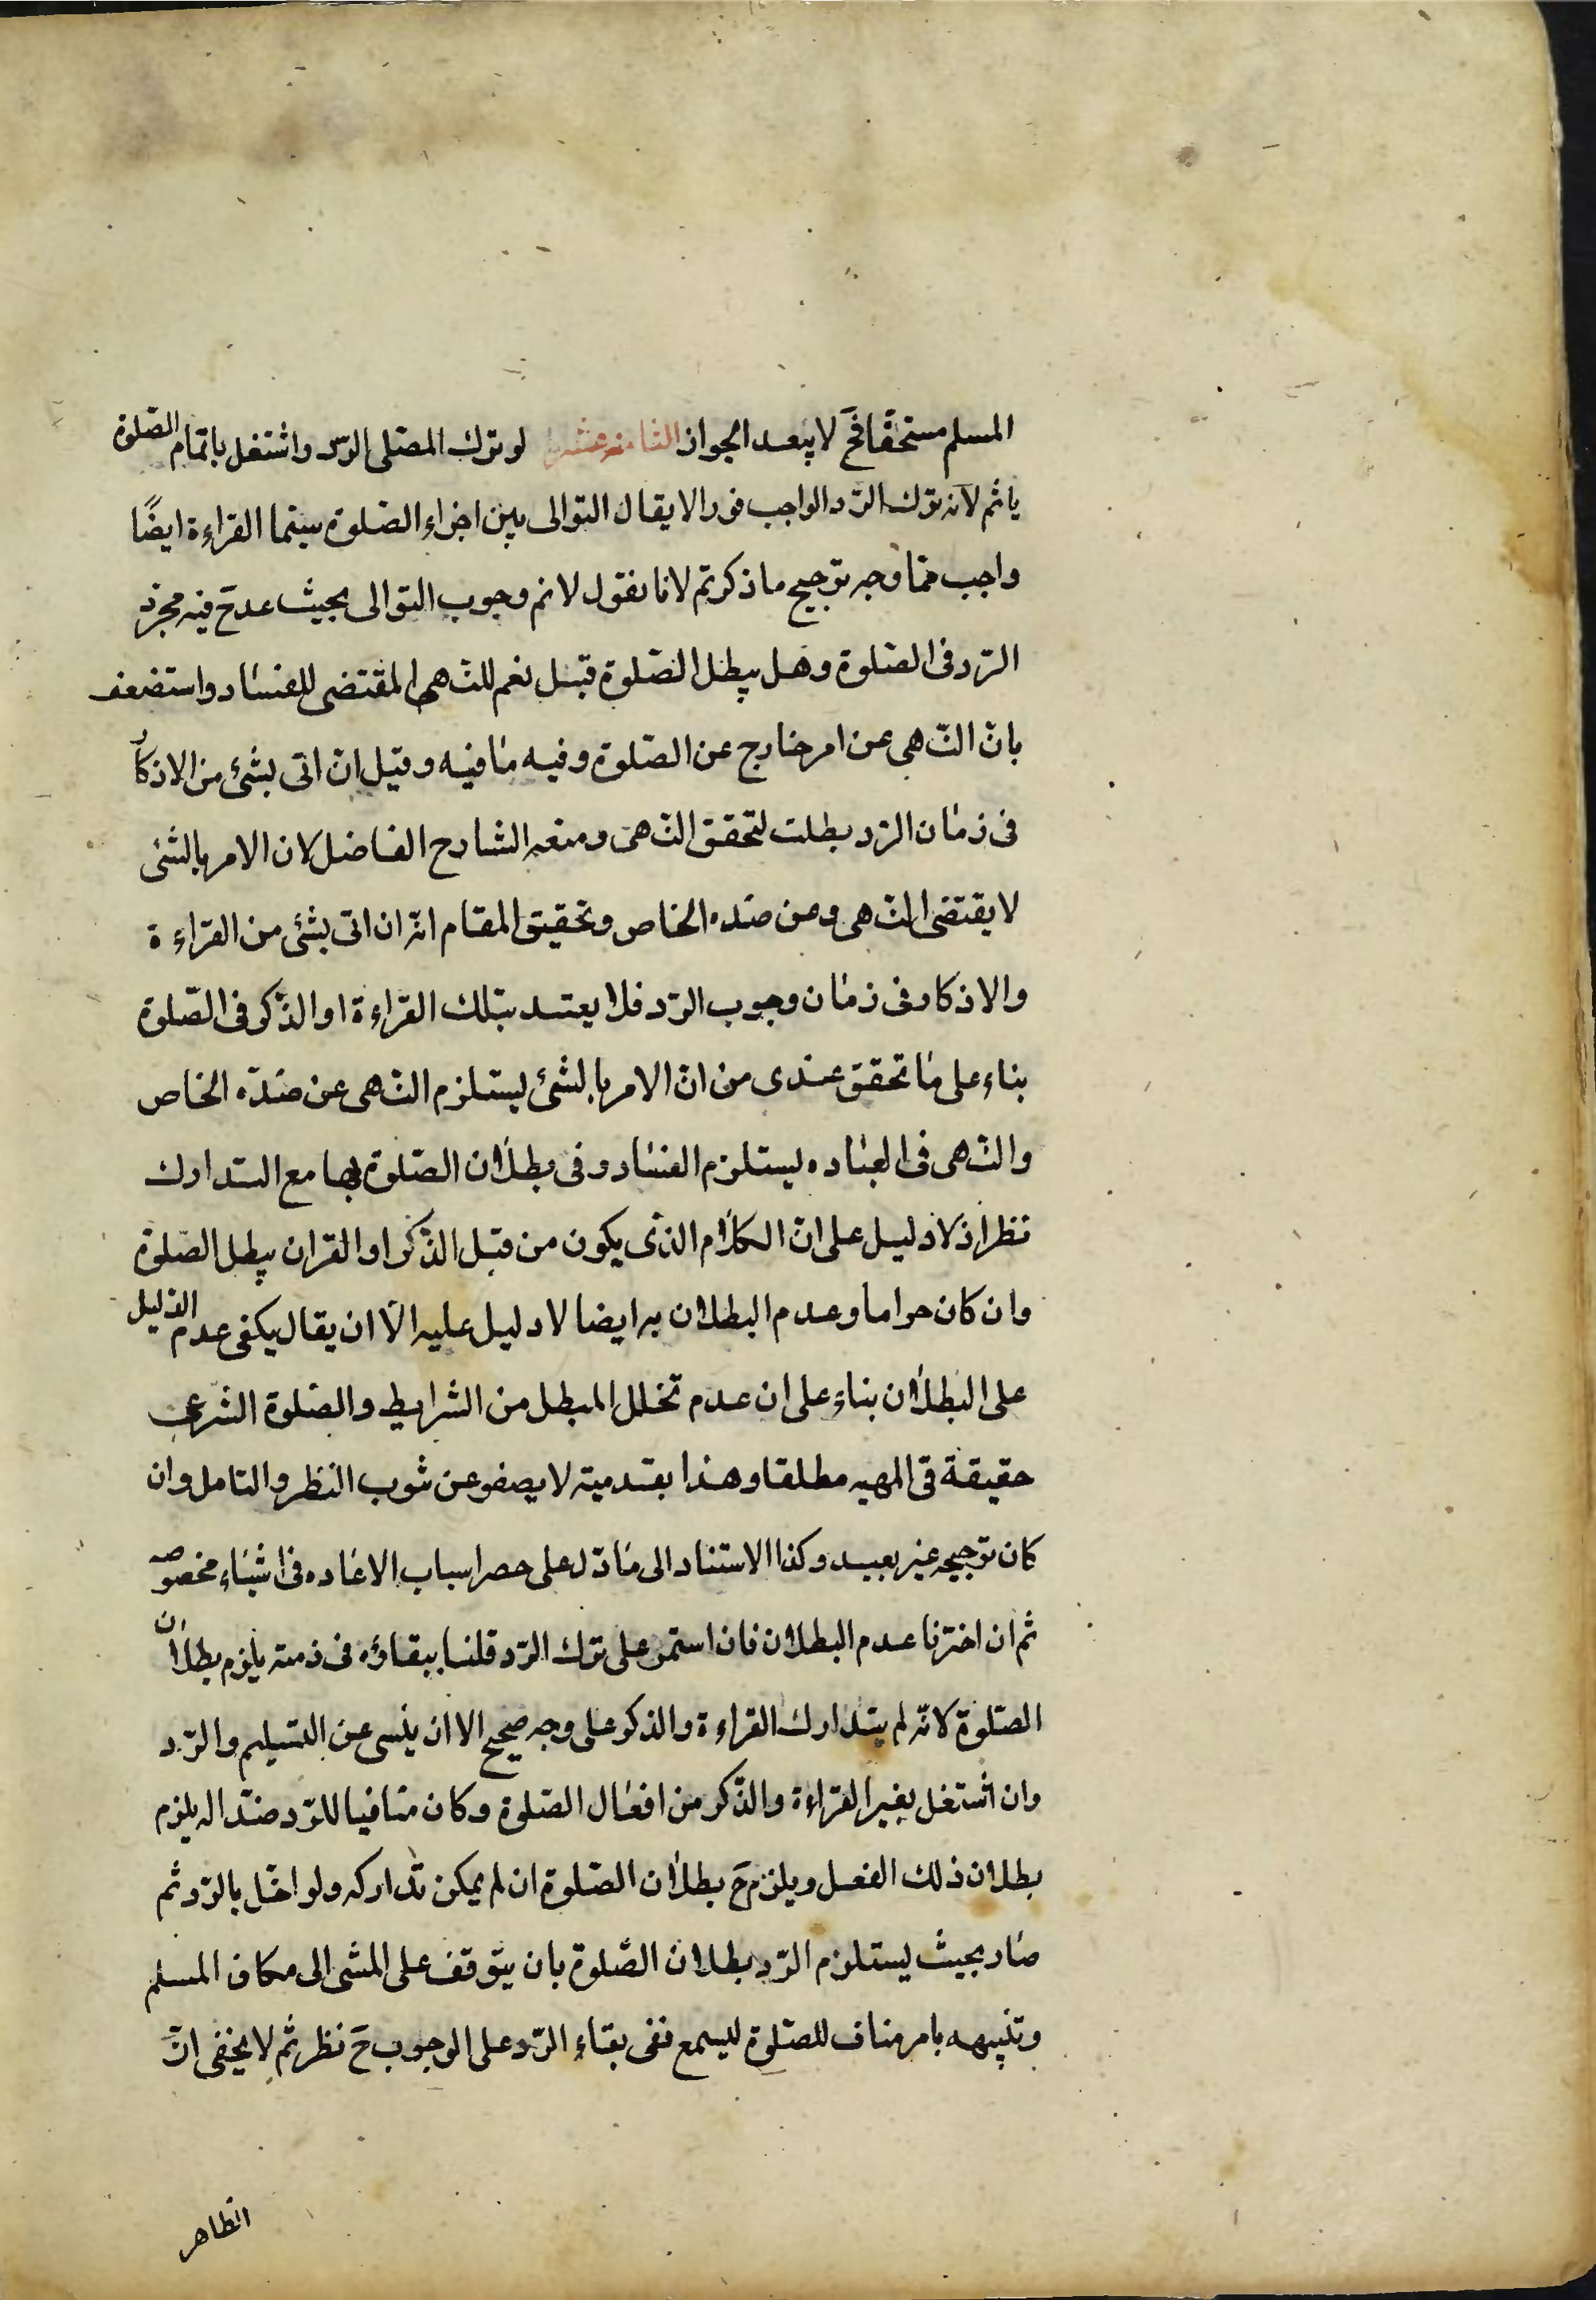 المسلم مستحقا فح لا يبعد الجواز الثامنه عشر لو ترك المصلى الرد واشتغل باتمام الصلوة
ياثم لانه ترك الرد الواجب فورا لا يقال التوالى بين اجزاء الصلوة سيما القراءة ايضًا
واجب فما وجه ترجيح ما ذكرتم لانا نقول لانم وجوب التوالى بحيث يقدح فيه مجرد
الرد فى الصلوة وهل يبطل الصلوة قيل نعم للنهى المقتضى للفساد واستضعف
بان النهى عن امر خارج عن الصلوة وفيه ما فيه وقيل ان اتى بشئ من الاذكار
فى زمان الرد بطلت لتحقق النهى ومنعه الشارح الفاضل لان الامر بالشئ
لا يقتضى النهى وعن ضده الخاص وتحقيق المقام انه ان اتى بشئ من القراءة
والاذكار فى زمان وجوب الرد فلا يعتد بتلك القراءة او الذكر فى الصلوة
بناء على ما تحقق عندى من ان الامر بالشئ يستلزم النهى عن ضده الخاص
والنهى فى العباده يستلزم الفساد وفى بطلان الصلوة بها مع التدارك
نظر اذ لا دليل على ان الكلام الذى يكون من قبل الذكر او القران يبطل الصلوة
وان كان حراما وعدم البطلان به ايضا لا دليل عليه الا ان يقال يكفى عدم الدليل
على البطلان بناء على ان عدم تخلل المبطل من الشرايط والصلوة الشرعى
حقيقة فى المهيه مطلقا وهذا بقدميته لا يصفو عن شوب النظر والتامل وان
كان ترجيحه غير بعيد وكذا الاستناد الى ما دل على حصر اسباب الاعاده فى اشياء مخصوصه
ثم ان اخترنا عدم البطلان فان استمر على ترك الرد قلنا ببقاؤه فى ذمته يلزم بطلان
الصلوة لانه لم يتدارك القراءة والذكر على وجه صحيح الا ان ينسى عن التسليم والرد
وان اشتغل بغير القراءة والذكر من افعال الصلوة وكان منافيا للرد ضدا له يلزم
بطلان ذلك الفعل ويلزم ح بطلان الصلوة ان لم يمكن تداركه ولو اخل بالرد ثم
صار بحيث يستلزم الرد بطلان الصلوة بان يتوقف على المشى الى مكان المسلم
وتنبيهه بامر مناف للصلوة ليسمع ففى بقاء الرد على الوجوب ح نظر ثم لا يخفى ان
الظاهر